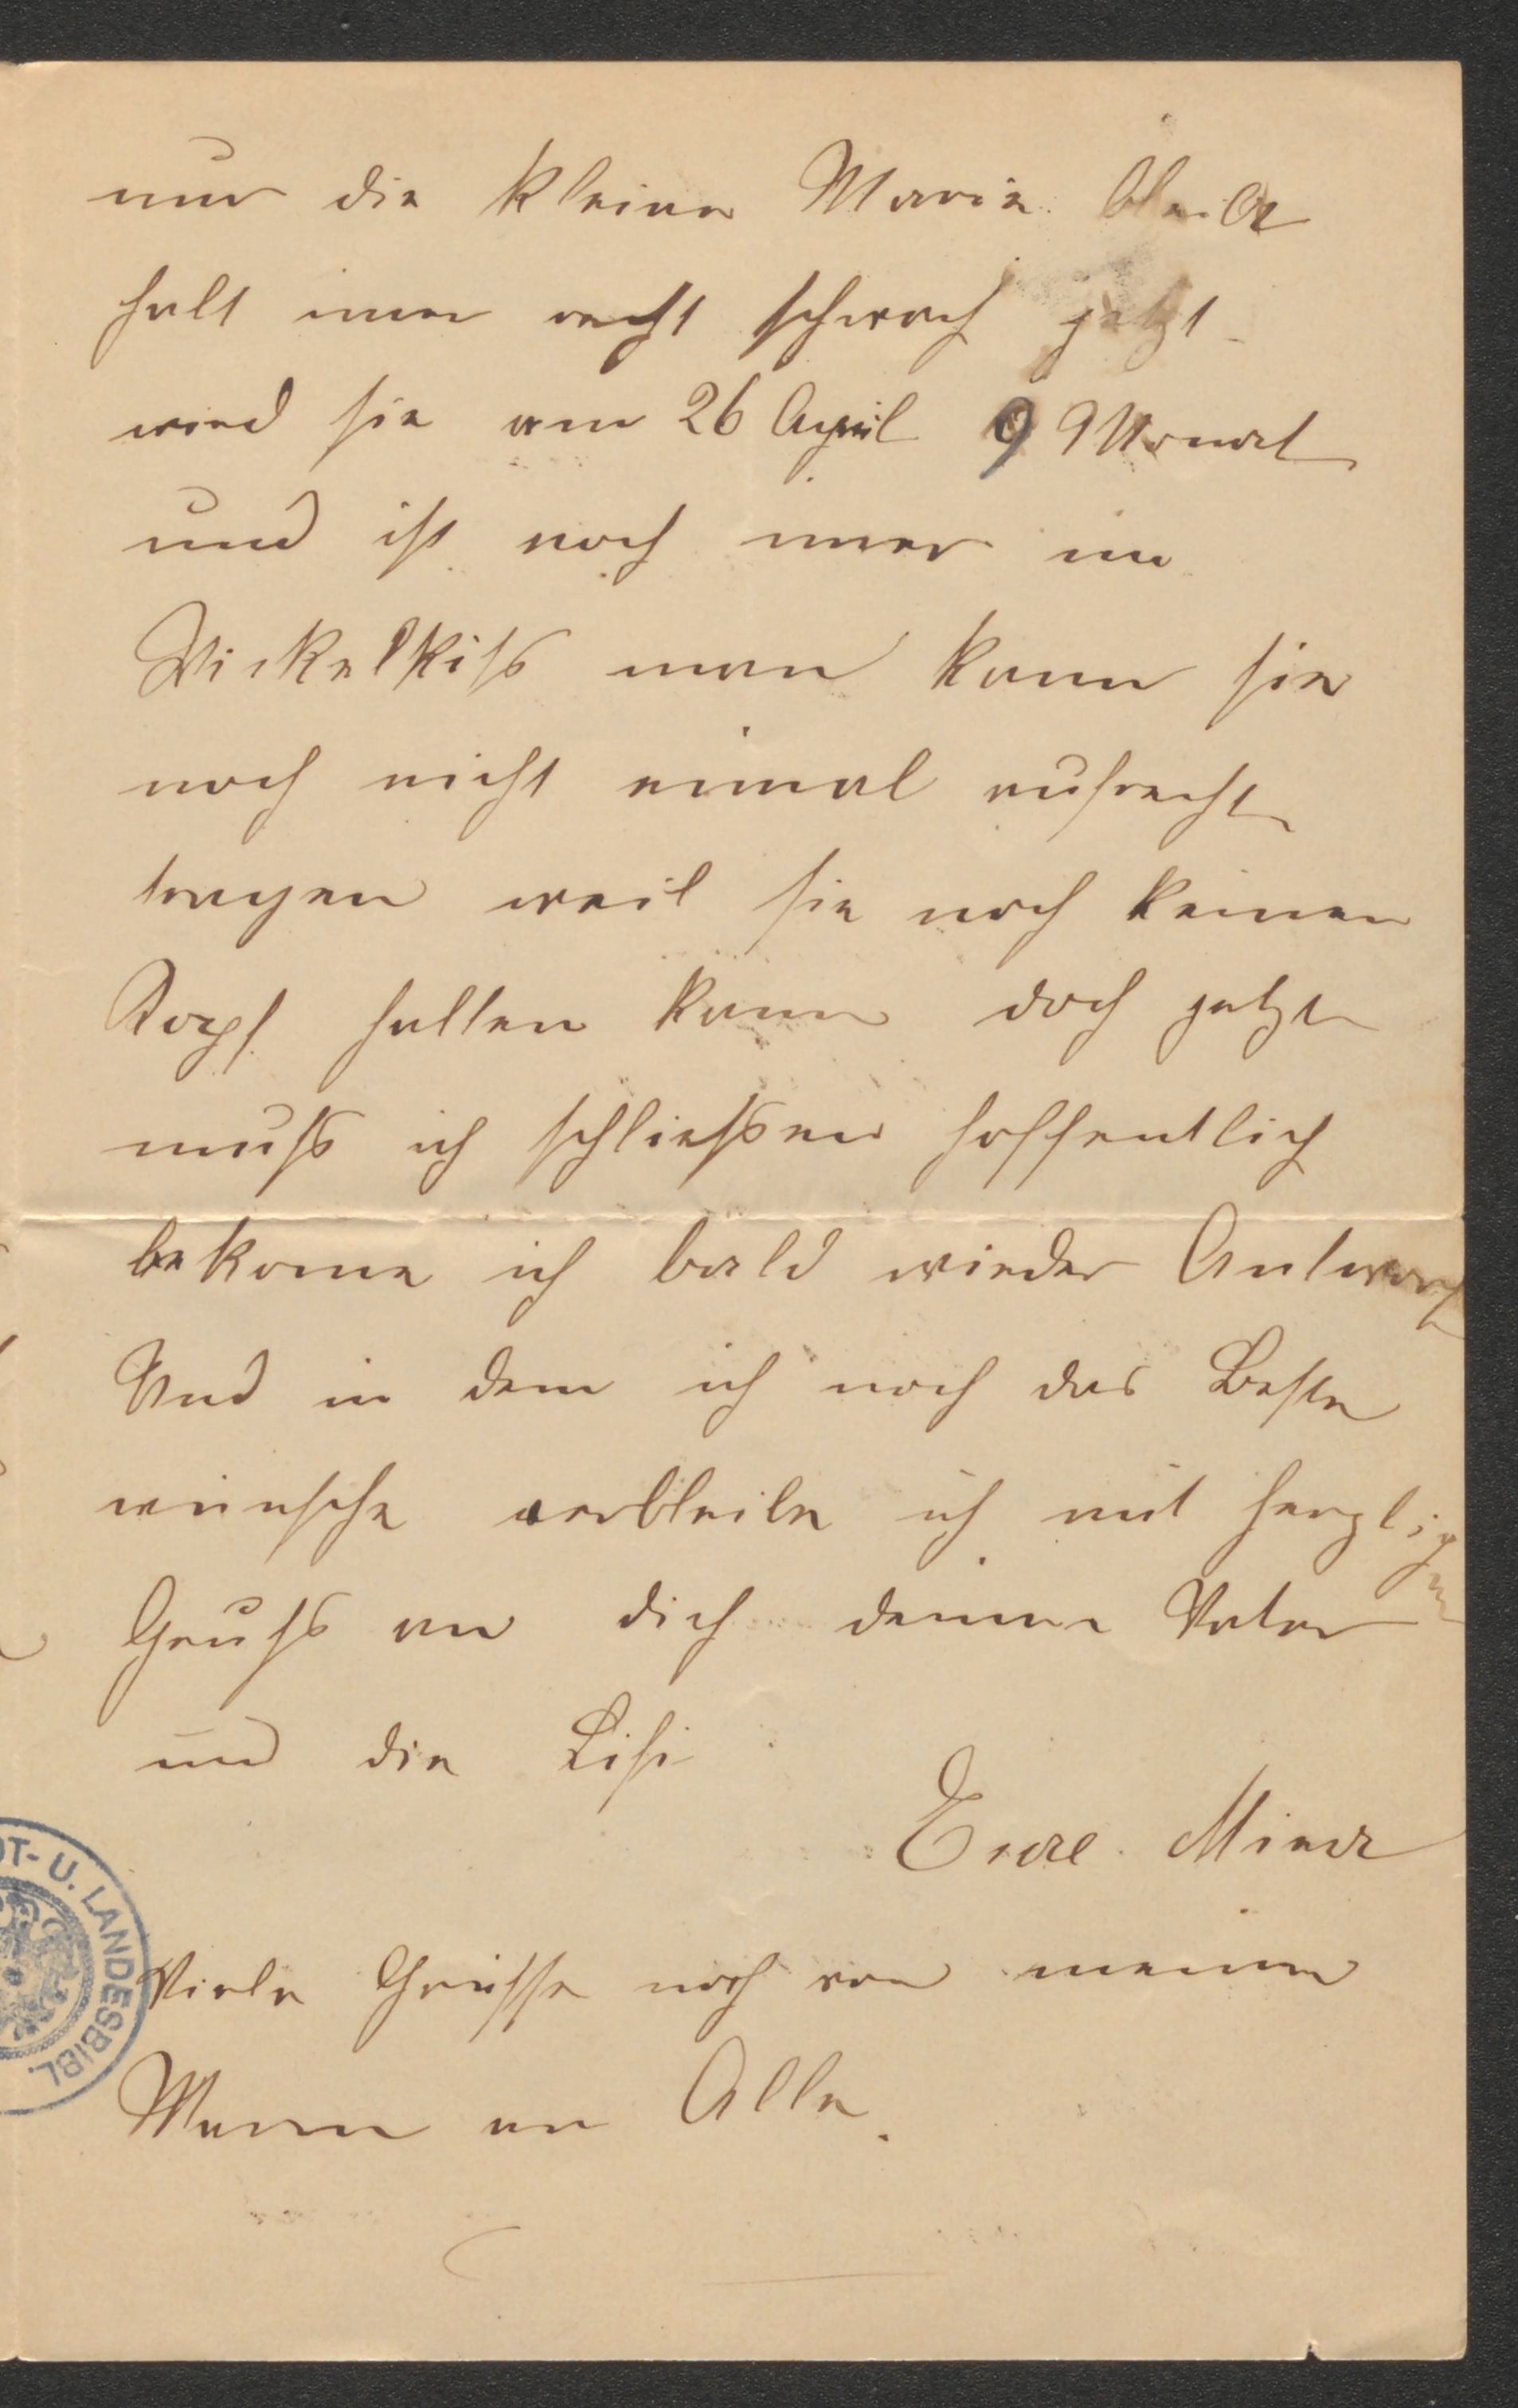 nur die kleine Marie bleibt
halt imer recht schwach jetzt
wird sie am 26 April 9 Monat
und ist noch imer im
Wickelkiss man kann sie
noch nicht eimal aufrecht
tragen weil sie noch keinen
Kopf halten kann doch jetzt
muß ich schließen hoffentlich
bekome ich bald wieder Antwort
Und in dem ich noch das Beste
wünsche verbleibe ich mit herzlichen
Gruß an dich deinen Vater
und die Lisi
Eure Minna
Viele Grüsse noch von meinem
Mann an Alle.
DT- U. LANDESBIBL.